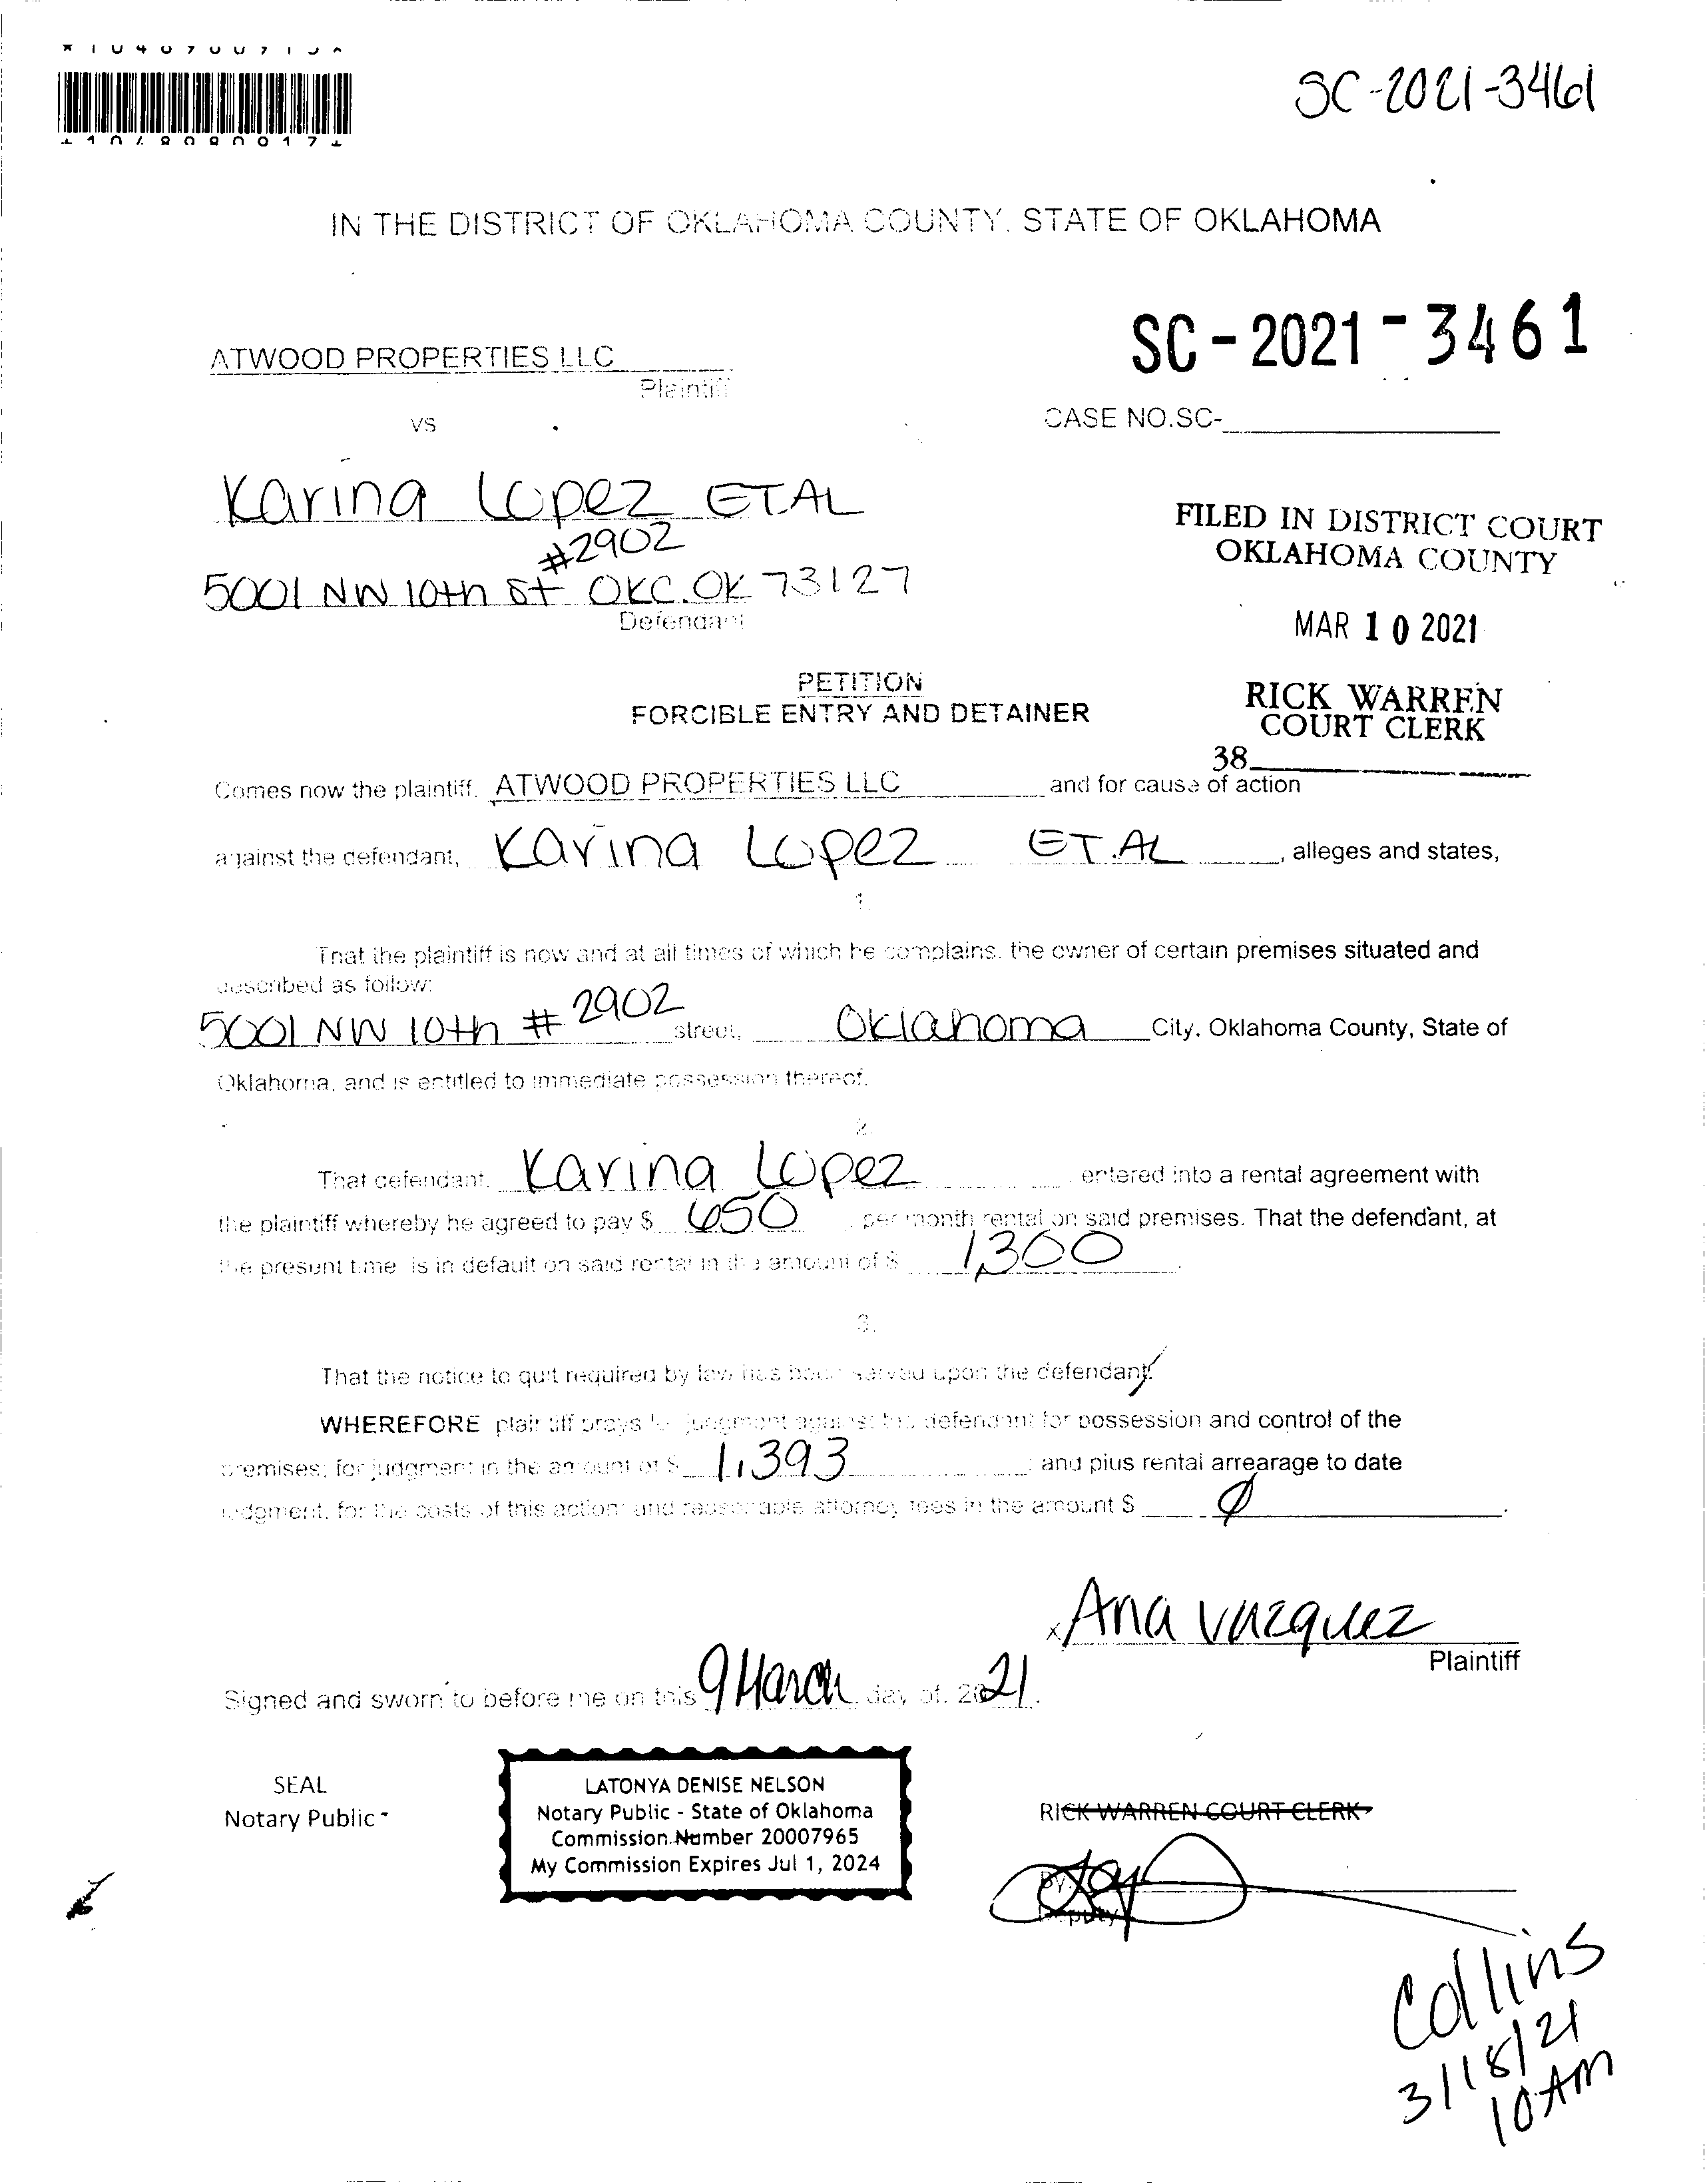 SC-2021-3461
IN THE DISTRICT OF OKLAHOMA COUNTY, STATE OF OKLAHOMA
SC-2021-3461
ATWOOD PROPERTIES LLC
Plaintiff
CASE NO.SC-
VS
Karina Lopez ET.AL
#2902
5001 NW 10th St OKC.OK 73127
Defendant
FILED IN DISTRICT COURT
OKLAHOMA COUNTY
MAR 10 2021
RICK WARREN
COURT CLERK
38
PETITION
FORCIBLE ENTRY AND DETAINER
Comes now the plaintiff, ATWOOD PROPERTIES LLC and for cause of action
against the defendant, Karina Lopez ET.AL, alleges and states,
1.
That the plaintiff is now and at all times of which he complains, the owner of certain premises situated and
described as follow:
5001 NW 10th # 2902 street, Oklahoma City, Oklahoma County, State of
Oklahoma, and is entitled to immediate possession thereof.
2.
That defendant, Karina Lopez entered into a rental agreement with
the plaintiff whereby he agreed to pay $ 650 per month rental on said premises. That the defendant, at
the present time is in default on said rental in the amount of $ 1,300
3.
That the notice to quit required by law has been served upon the defendant.
WHEREFORE plaintiff prays for judgment against the defendant for possession and control of the
premises; for judgment in the amount of $ 1,393; and plus rental arrearage to date
judgment, for the costs of this action; and reasonable attorney fees in the amount $ Ø.
x Ana Vazquez
Plaintiff
Signed and sworn to before me on this 9 March day of, 2021.
SEAL
Notary Public
LATONYA DENISE NELSON
Notary Public - State of Oklahoma
Commission Number 20007965
My Commission Expires Jul 1, 2024
RICK WARREN COURT CLERK
By:
Deputy
Collins
3/18/21
10 AM